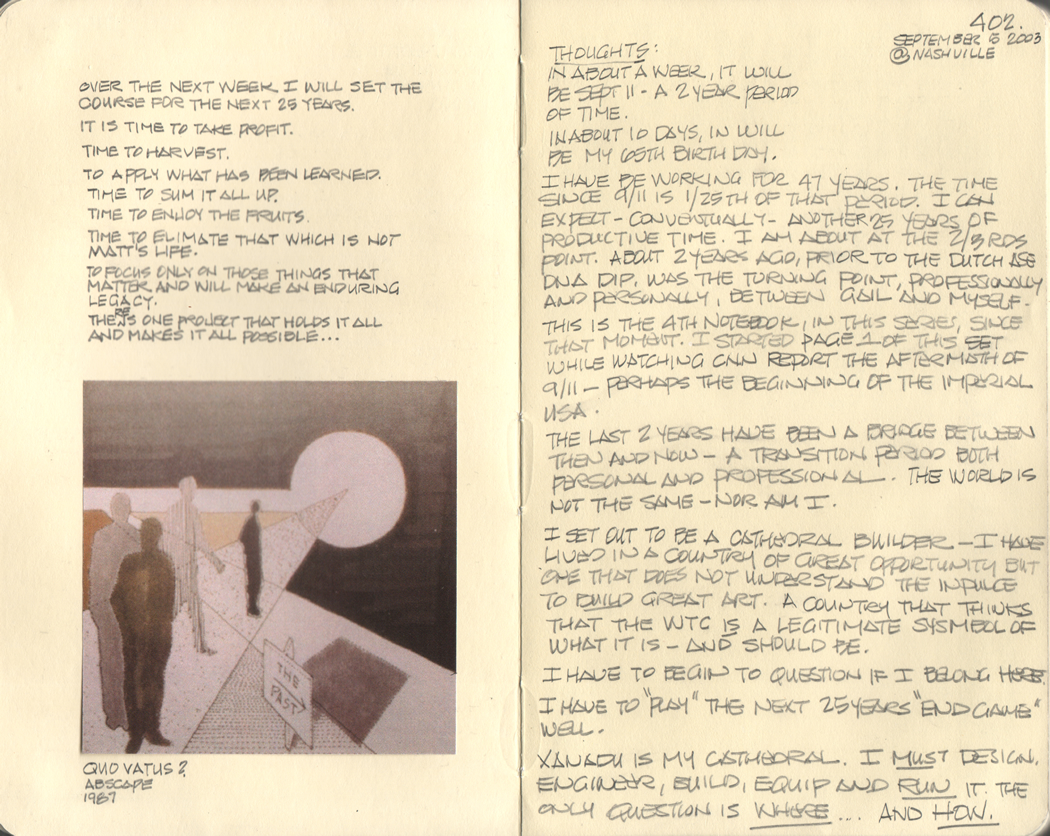 OVER THE NEXT WEEK I WILL SET THE
COURSE FOR THE NEXT 25 YEARS.
IT IS TIME TO TAKE PROFIT.
TIME TO HARVEST.
TO APPLY WHAT HAS BEEN LEARNED.
TIME TO SUM IT ALL UP.
TIME TO ENJOY THE FRUITS.
TIME TO ELIMATE THAT WHICH IS NOT
MATT'S LIFE.
TO FOCUS ONLY ON THOSE THINGS THAT
MATTER AND WILL MAKE AN ENDURING
LEGACY.
THERE IS ONE PROJECT THAT HOLDS IT ALL
AND MAKES IT ALL POSSIBLE...
THE
PAST
QUO VATUS?
ABSCAPE
1987
402.
SEPTEMBER 5 2003
@ NASHVILLE
THOUGHTS:
IN ABOUT A WEEK, IT WILL
BE SEPT 11 - A 2 YEAR PERIOD
OF TIME.
IN ABOUT 10 DAYS, IN WILL
BE MY 65TH BIRTH DAY.
I HAVE BE WORKING FOR 47 YEARS. THE TIME
SINCE 9/11 IS 1/25TH OF THAT PERIOD. I CAN
EXPECT - CONVENTUALLY - ANOTHER 25 YEARS OF
PRODUCTIVE TIME. I AM ABOUT AT THE 2/3RDS
POINT. ABOUT 2 YEARS AGO, PRIOR TO THE DUTCH ASE
DNA DIP, WAS THE TURNING POINT, PROFESSIONALLY
AND PERSONALLY, BETWEEN GAIL AND MYSELF.
THIS IS THE 4TH NOTEBOOK, IN THIS SERIES, SINCE
THAT MOMENT. I STARTED PAGE 1 OF THIS SET
WHILE WATCHING CNN REPORT THE AFTERMATH OF
9/11 - PERHAPS THE BEGINNING OF THE IMPERIAL
USA.
THE LAST 2 YEARS HAVE BEEN A BRIDGE BETWEEN
THEN AND NOW - A TRANSITION PERIOD BOTH
PERSONAL AND PROFESSIONAL. THE WORLD IS
NOT THE SAME - NOR AM I.
I SET OUT TO BE A CATHEDRAL BUILDER - I HAVE
LIVED IN A COUNTRY OF GREAT OPPORTUNITY BUT
ONE THAT DOES NOT UNDERSTAND THE INPULCE
TO BUILD GREAT ART. A COUNTRY THAT THINKS
THAT THE WTC IS A LEGITIMATE SYSMBOL OF
WHAT IT IS - AND SHOULD BE.
I HAVE TO BEGIN TO QUESTION IF I BELONG HERE.
I HAVE TO "PLAY" THE NEXT 25 YEARS "END GAME"
WELL.
XANADU IS MY CATHEDRAL. I MUST DESIGN,
ENGINEER, BUILD, EQUIP AND RUN IT. THE
ONLY QUESTION IS WHERE .... AND HOW.